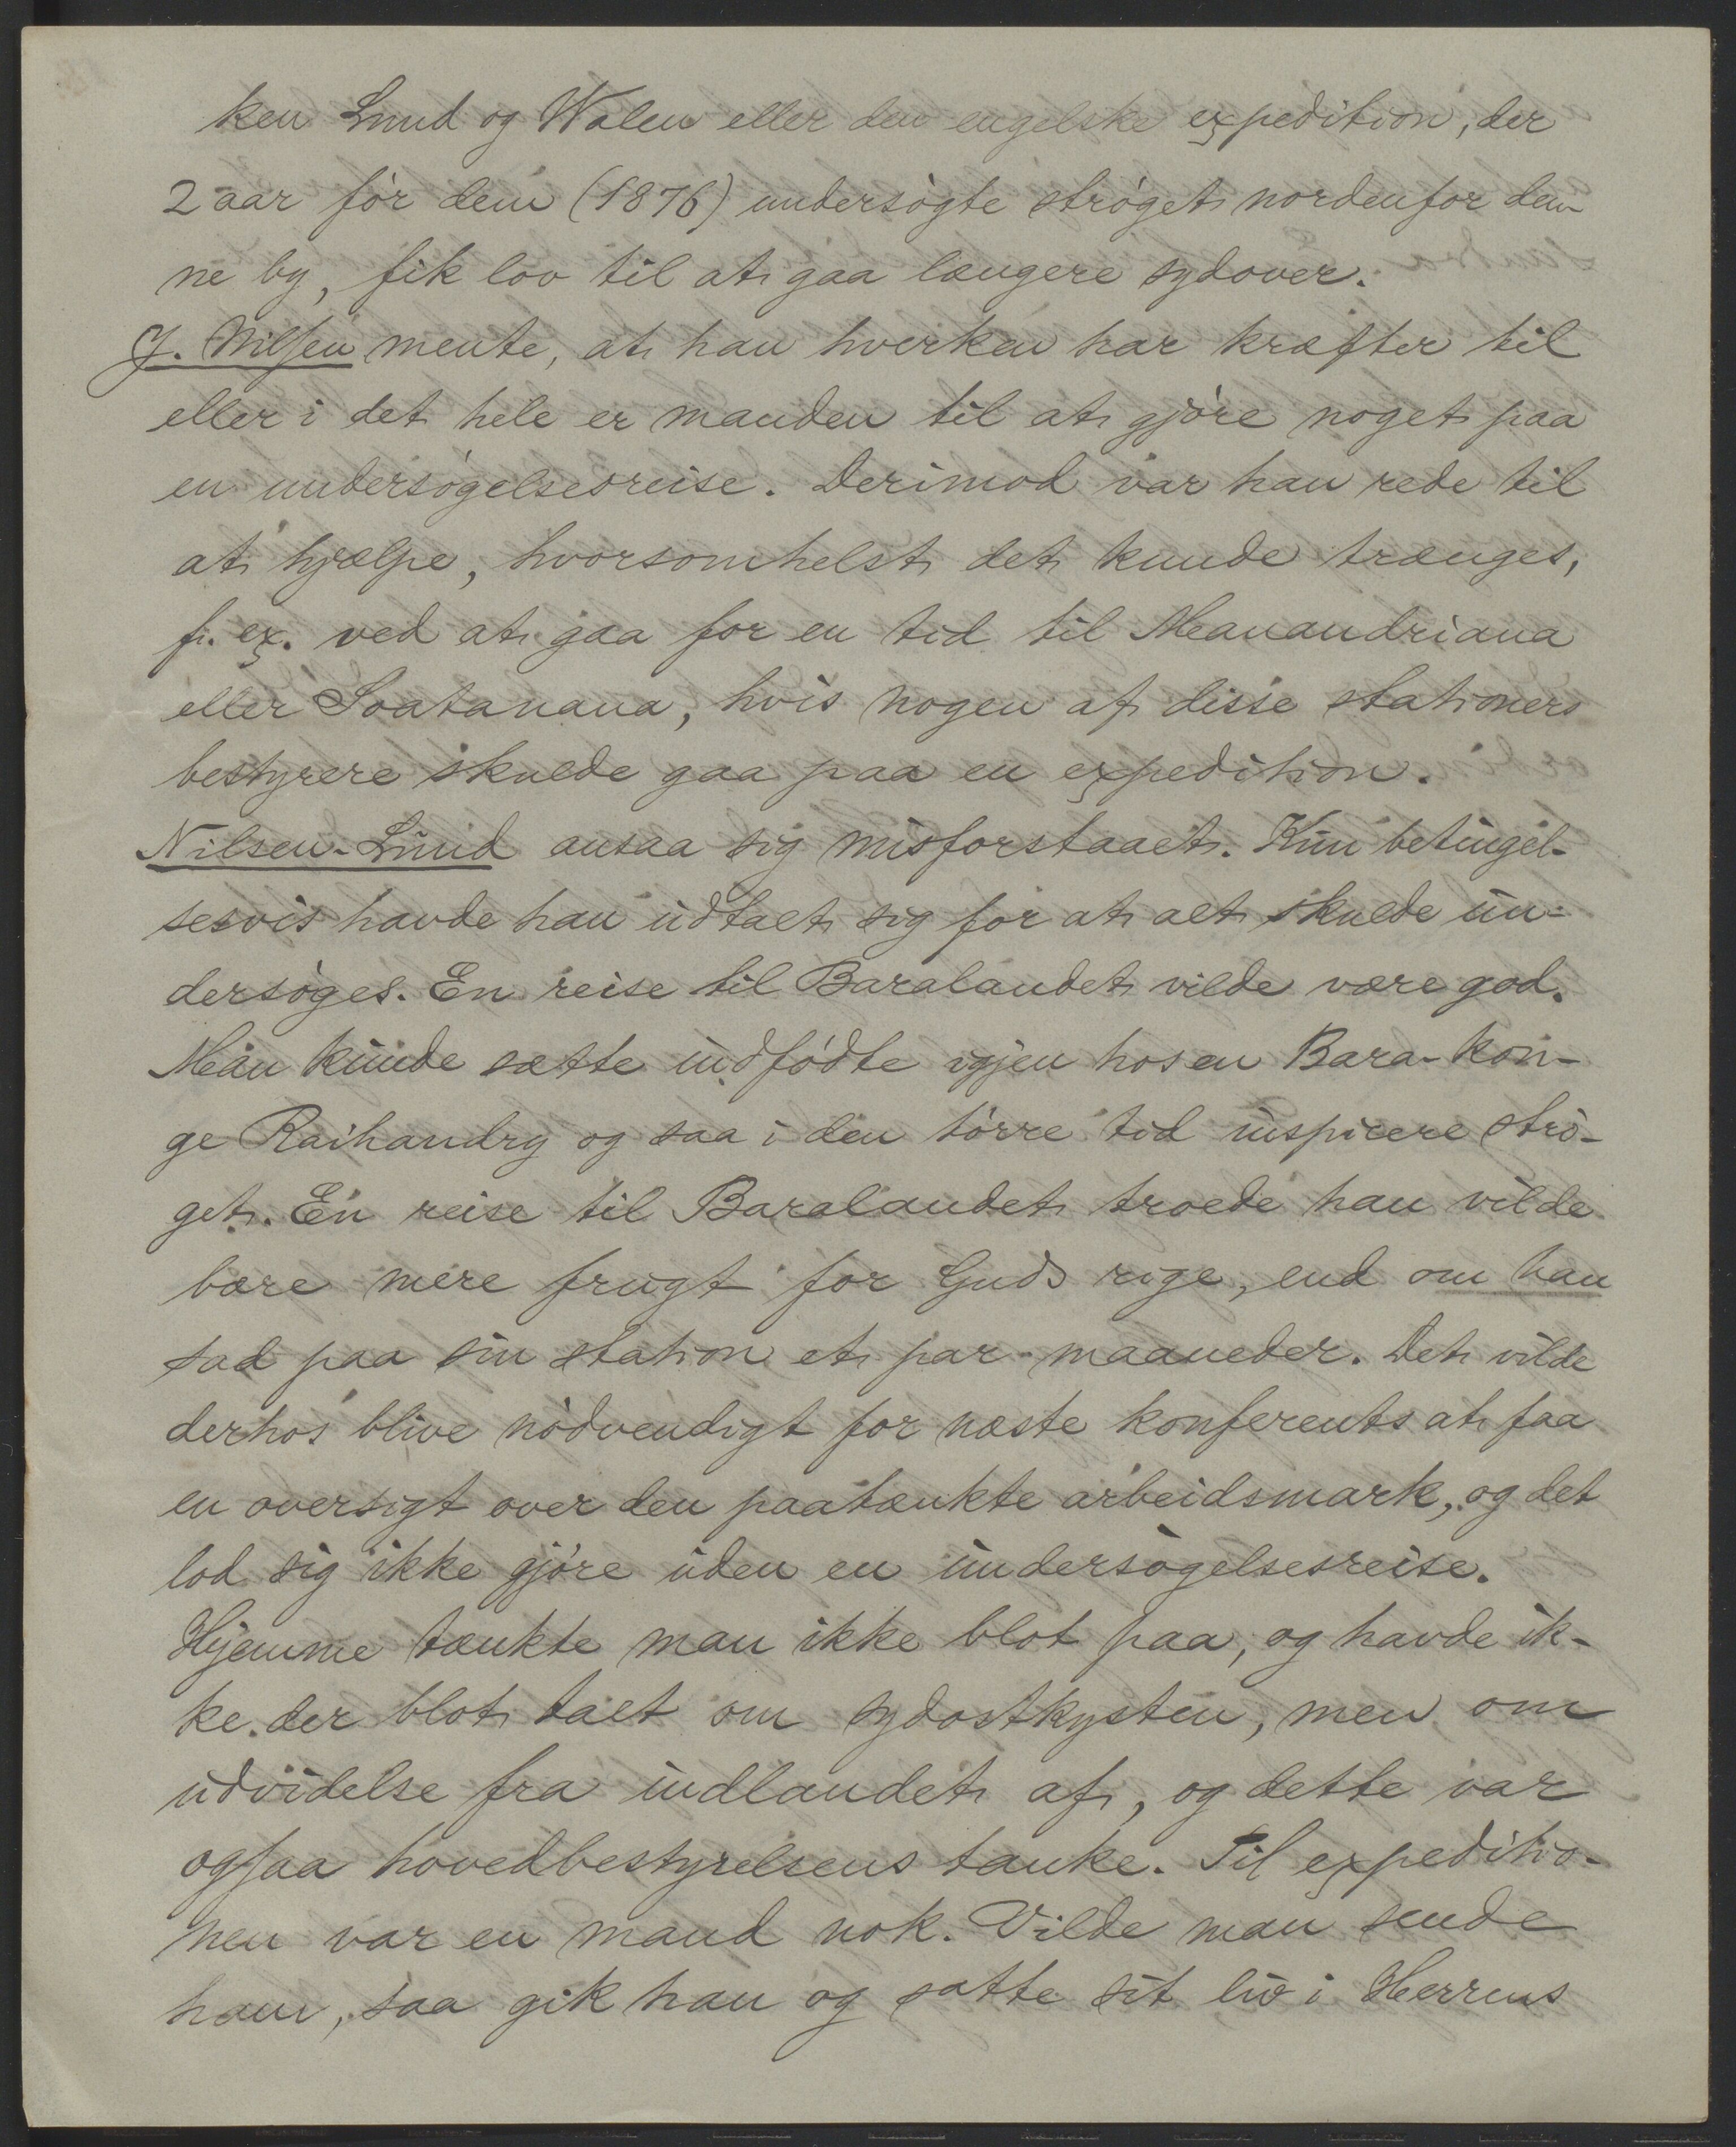 ken Lund og Walen eller den engelske expedition, der
2 aar før dem (1876) undersøgte strøget nordenfor den-
ne by, fik lov til at gaa længere sydover.
J. Nilsen mente, at han hverken har kræfter til
eller i det hele er manden til at gjøre noget paa
en undersøgelsesreise. Derimod var han rede til
at hjælpe, hvorsomhelst det kunde trænges,
f. ex. ved at gaa for en tid til Manandriana
eller Soatanana, hvis nogen af disse stationers
bestyrere skulde gaa paa en expedition.
Nilsen-Lund ansaa sig misforstaaet. Kun betingel-
sesvis havde han udtalt sig for at alt skulde un-
dersøges. En reise til Baralandet vilde være god.
Man kunde sætte indfødte igjen hos en Bara-kon-
ge Raihandry og saa i den tørre tid inspicere strø-
get. En reise til Baralandet troede han vilde
bære mere frugt for Guds rige, end om han
sad paa sin station et par maaneder. Det vilde
derhos blive nødvendigt for næste konferents at faa
en oversigt over den paatænkte arbeidsmark, og det
lod sig ikke gjøre uden en undersøgelsesreise.
Hjemme tænkte man ikke blot paa, og havde ik-
ke der blot talt om sydostkysten, men om
udvidelse fra indlandet af, og dette var
ogsaa hovedbestyrelsens tanke. Til expeditio-
nen var en mand nok. Vilde man sende
ham, saa gik han og satte sit liv i Herrens